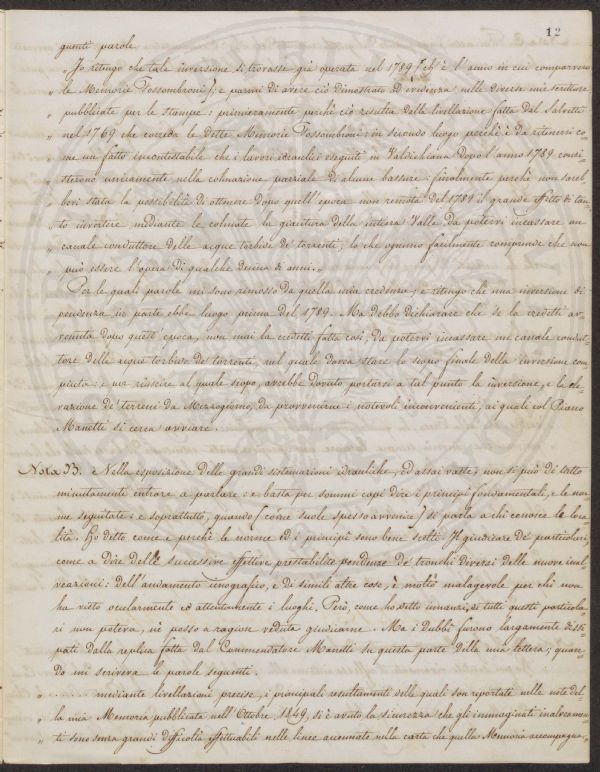 12
guenti parole
Io ritengo che tale inversione si trovasse già operata nel 1789 (ch'è l'anno in cui comparvero
„ le Memorie Fossombroni), e parmi di avere ciò dimostrato ad evidenza nelle diverse mie scritture
„ pubblicate per le stampe: primieramente perchè ciò risulta dalla livellazione fatta dal Salvetti
„ nel 1769 che correda le dette Memorie Fossombroni: in secondo luogo perchè è da ritenersi co-
„ me un fatto incontestabile che i lavori idraulici eseguiti in Valdichiana dopo l'anno 1789 consi-
„ sterono unicamente nella colmazione parziale di alcune bassure: finalmente perchè non sareb-
„ bevi stata la possibilità di ottenere dopo quell'epoca non remota del 1789 il grande effetto di tan-
„ to invertere mediante le colmate la giacitura della intiera Valle da potervi incassare un
„ canale conduttore delle acque torbide de' torrenti; lo che ognuno facilmente comprende che non
„ può essere l'opera di qualche decina di anni.„
Per le quali parole mi sono rimosso da quella mia credenza; e ritengo che una inversione di
pendenza in parte ebbe luogo prima del 1789. Ma debbo dichiarare che se la credetti av-
venuta dopo quest'epoca, non mai la credetti fatta così, da potervi incassare un canale condut-
tore delle acque torbide de' torrenti, nel quale dovea stare lo scopo finale della inversione com-
piuta: e per riuscire al quale scopo, avrebbe dovuto portarsi a tal punto la inversione, e la ele-
vazione de' terreni da Mezzogiorno, da provvenirne i notevoli inconvenienti, ai quali col Piano
Manetti si cerca avviare.
Nota B. Nella esposizione delle grandi sistemazioni idrauliche, ed assai vaste, non si può di tutto
minutamente entrare a parlare: e basta per sommi capi dire i principi fondamentali, e le nor-
me seguitate: e soprattutto, quando (come suole spesso avvenire) si parla a chi conosce le loca-
lità. Ho detto come e perchè le norme ed i principi sono bene scelti. Il giudicare de' particolari,
come a dire delle successive effettive prestabilite pendenze de' tronchi diversi delle nuove inal-
veazioni: dell'andamento icnografico, e di simili altre cose, è molto malagevole per chi non
ha visto ocularmente ed attentamente i luoghi. Però, come ho detto innanzi, di tutti questi particola-
ri non poteva, nè posso a ragion veduta giudicarne. Ma i dubbi furono largamente dissi-
pati dalla replica fatta dal Commendatore Manetti su questa parte della mia lettera; quan-
do mi scriveva le parole seguenti.
„ ........ mediante livellazioni precise, i principali resultamenti delle quali son riportate nelle note del-
„ la mia Memoria pubblicata nell'Ottobre 1849, si è avuto la sicurezza che gli immaginati inalveamen-
„ ti sono senza grandi difficoltà effettuabili nelle linee accennate nella carta che quella Memoria accompagna.